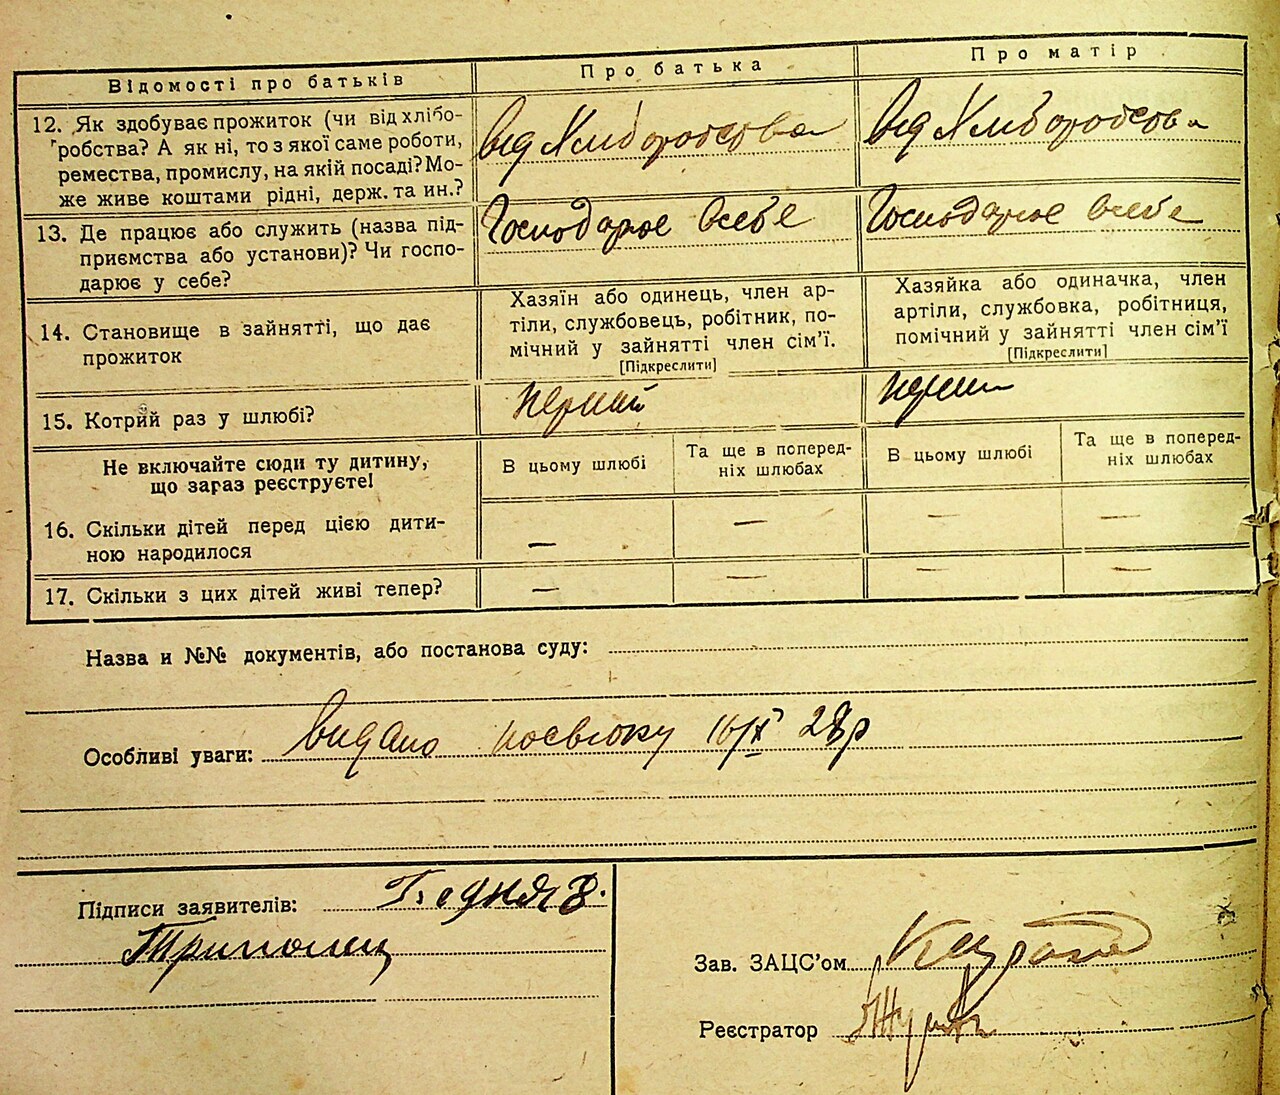 Відомості про батьків
Про батька
Про матір
12. Як здобуває прожиток (чи від хлібо-
робства? А як ні, то з якої саме роботи,
ремества, промислу, на якій посаді? Мо-
же живе коштами рідні, держ. та ин.?
від Хлиборобства
від Хлиборобства
13. Де працює або служить (назва під-
приємства або установи)? Чи госпо-
дарює у себе?
Господарює всебе
Господарює всебе
14. Становище в зайнятті, що дає
прожиток
Хазяїн або одинець, член ар-
тіли, службовець, робітник, по-
мічний у зайнятті член сім'ї.
[Підкреслити]
Хазяйка або одиначка, член
артіли, службовка, робітниця,
помічний у зайнятті член сім'ї
[Підкреслити]
15. Котрий раз у шлюбі?
перший
перший
Не включайте сюди ту дитину,
що зараз реєструєте!
В цьому шлюбі
Та ще в поперед-
ніх шлюбах
В цьому шлюбі
Та ще в поперед-
ніх шлюбах
16. Скільки дітей перед цією дити-
ною народилося
— — — —
17. Скільки з цих дітей живі тепер?
— — — —
Назва и №№ документів, або постанова суду:
Особливі уваги: видано посвідку 16/X 28р
Підписи заявителів:
Зав. ЗАЦС'ом
Реєстратор